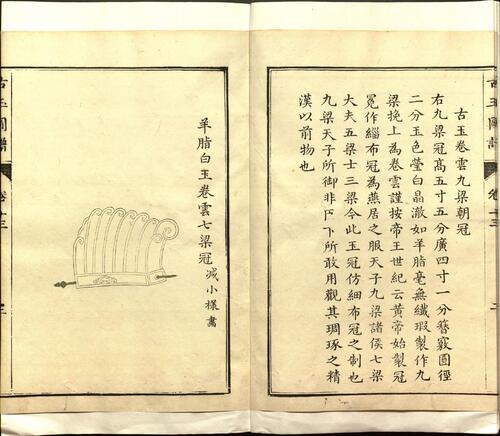 古玉卷雲九梁朝冠
右九梁冠高五寸五分廣四寸一分簪竅圓徑
二分玉色瑩白晶澈如羊脂毫無纖瑕製作九
梁挽上為卷雲謹按帝王世紀云黃帝始製冠
冕作緇布冠為燕居之服天子九梁諸侯七梁
大夫五梁士三梁今此玉冠仿細布冠之制也
九梁天子所御非下所敢用觀其琱琢之精
漢以前物也
卷十三
羊脂白玉卷雲七梁冠減小樣畫
古玉圖譜
卷十三